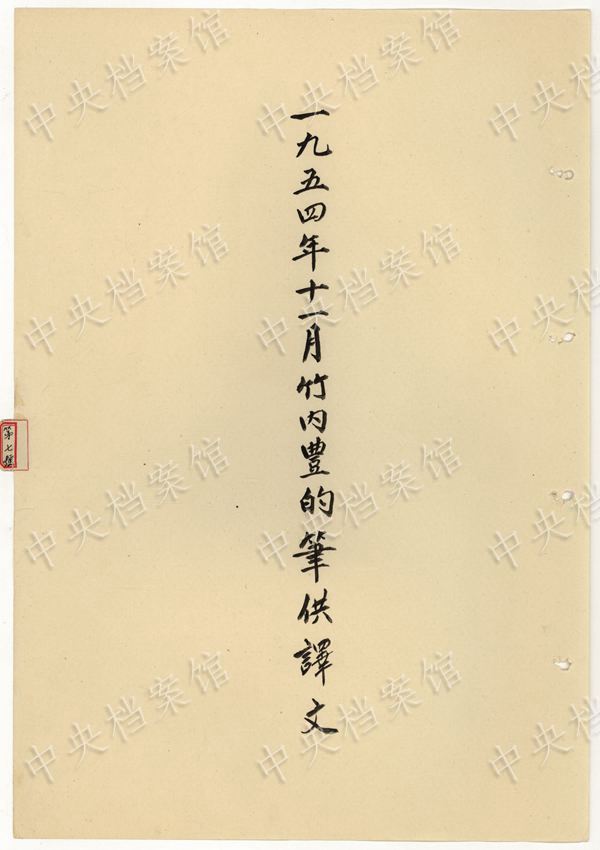 一九五四年十一月竹内豊的筆供譯文
第七號
中央档案馆
中央档案馆
中央档案馆
中央档案馆
中央档案馆
中央档案馆
中央档案馆
中央档案馆
中央档案馆
中央档案馆
中央档案馆
中央档案馆